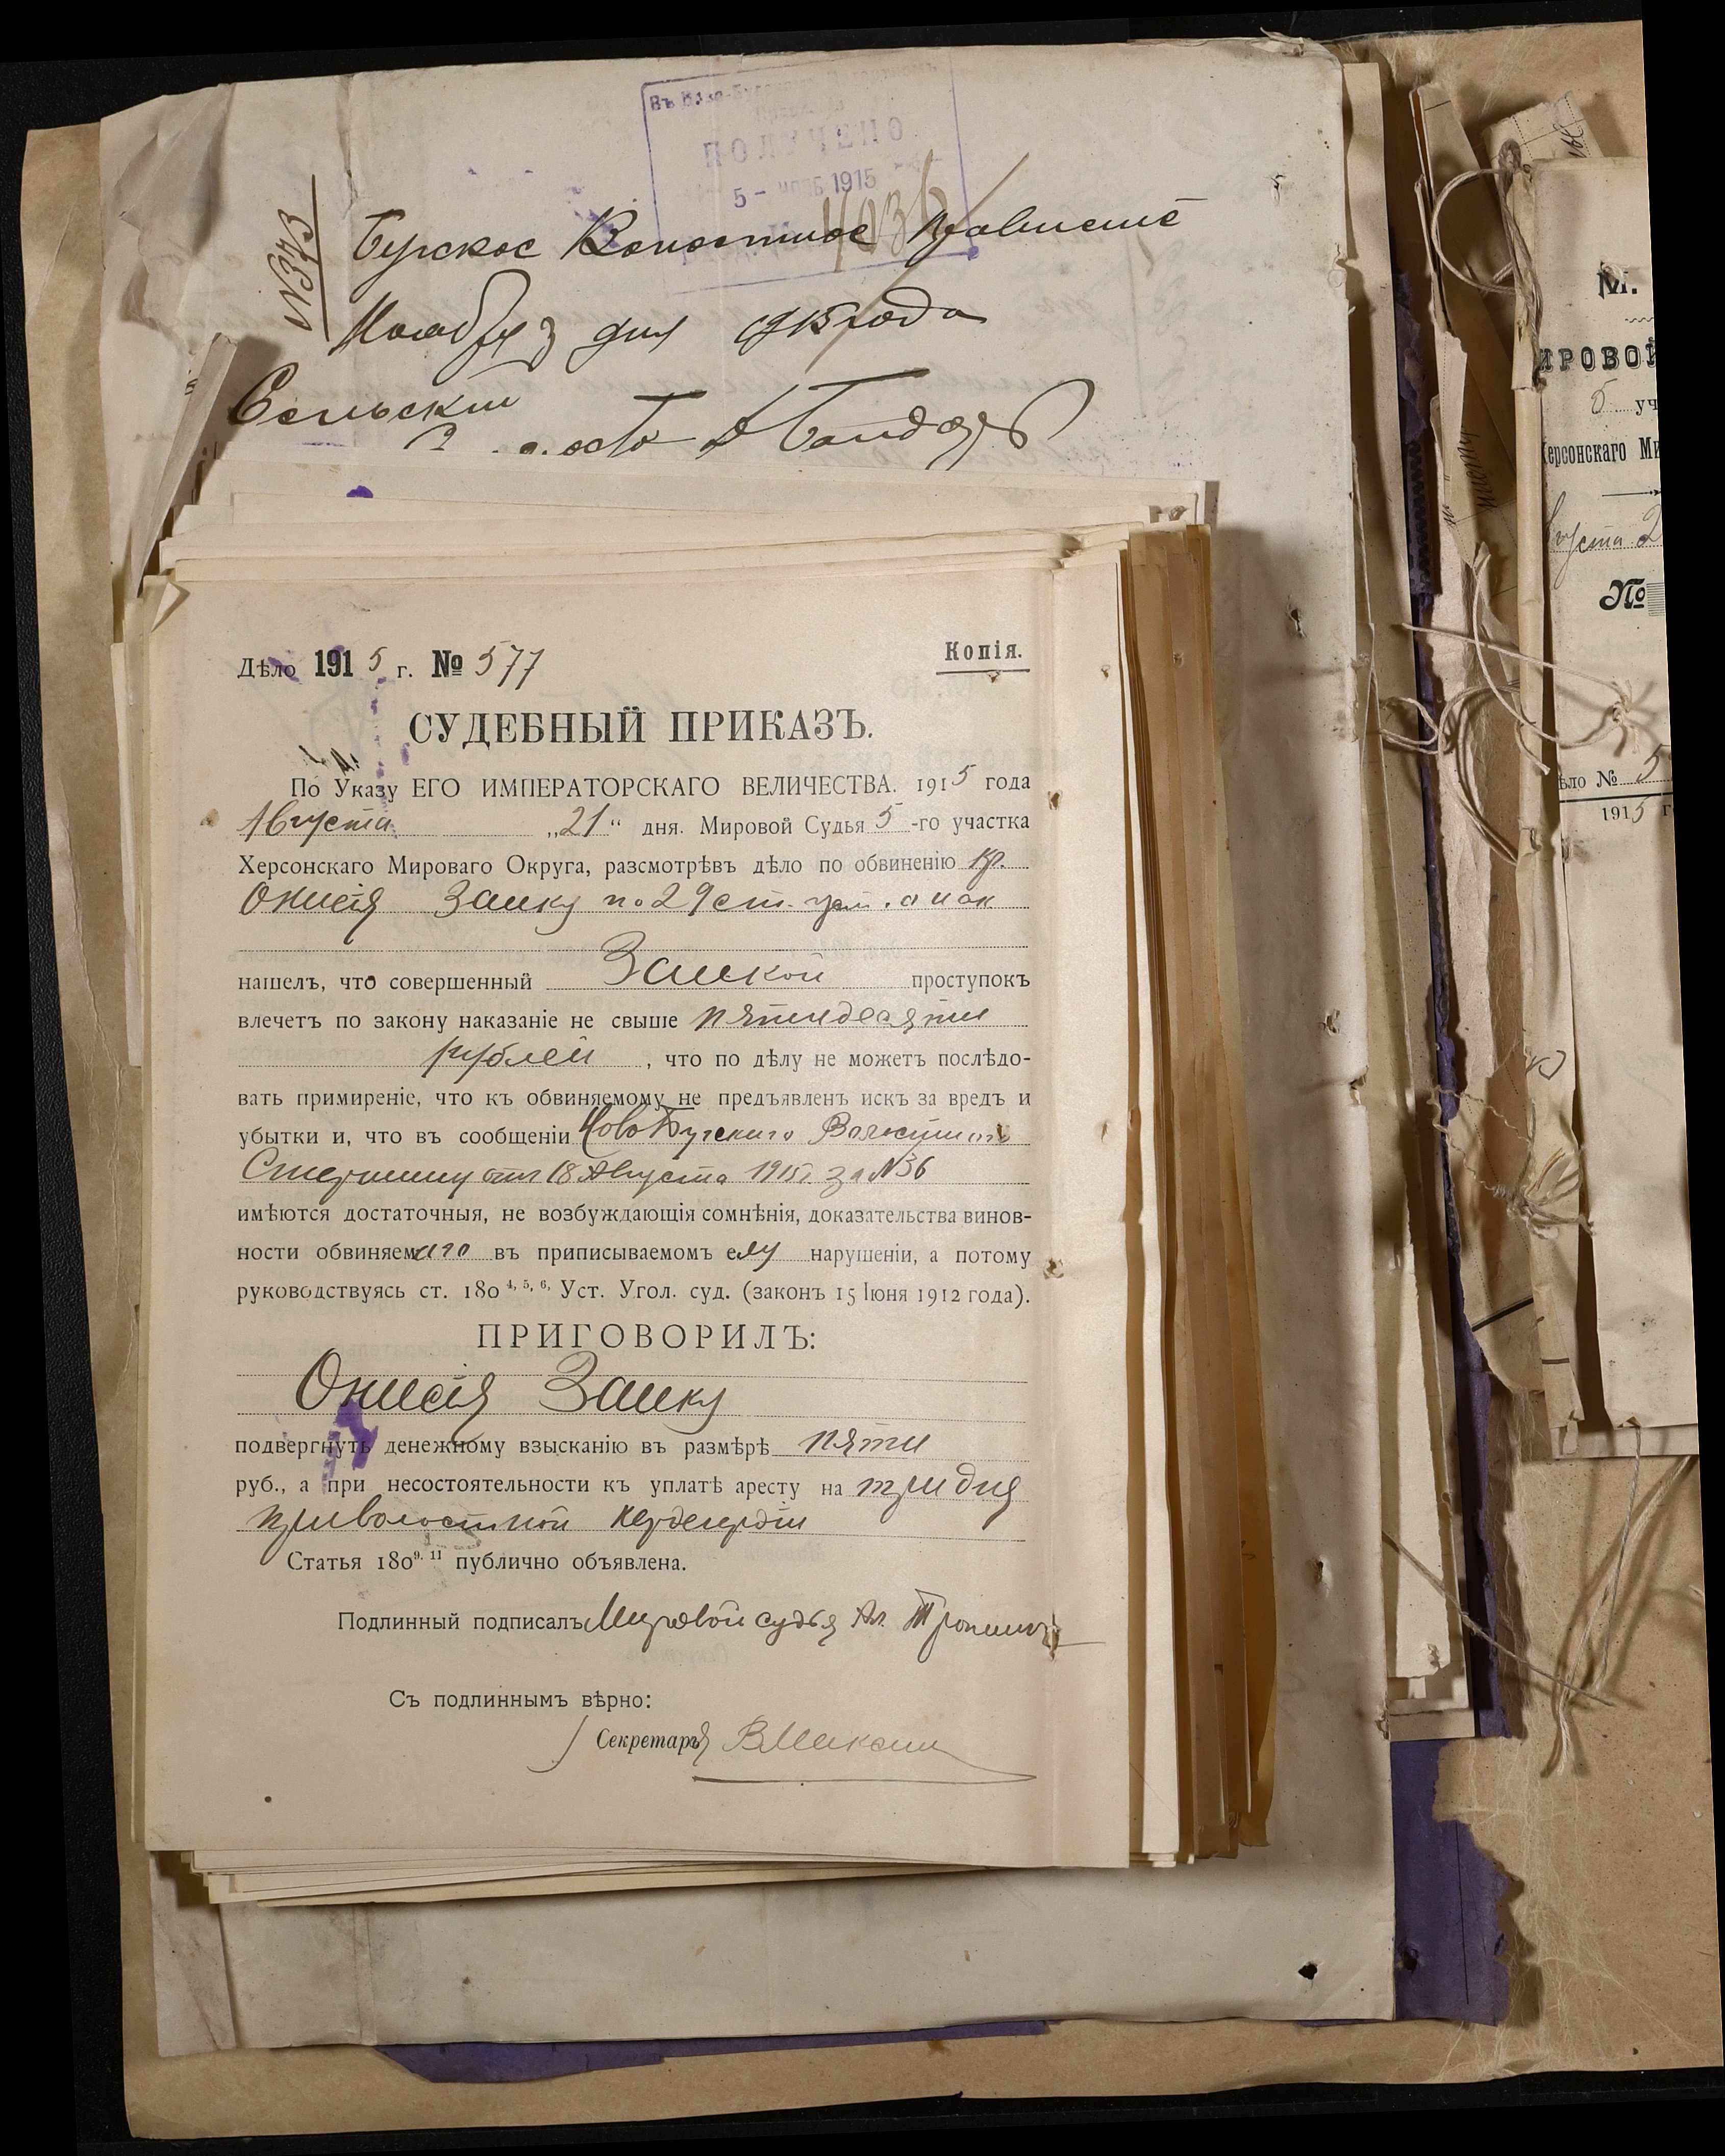 ПОЛУЧЕНО
5 - НОЯБ 1915
4036
№373
Бугское Волостное Правление
Ноября 3 дня 1915 года
Сельский
Дѣло 1915 г. № 577
Копія.
СУДЕБНЫЙ ПРИКАЗЪ.
По Указу ЕГО ИМПЕРАТОРСКАГО ВЕЛИЧЕСТВА. 1915 года
Августа „21“ дня. Мировой Судья 5-го участка
Херсонскаго Мироваго Округа, разсмотрѣвъ дѣло по обвиненію кр.
Онисія Заику по 29 ст. уст. о нак
нашелъ, что совершенный Заикой проступокъ
влечетъ по закону наказаніе не свыше пятидесяти
рублей, что по дѣлу не можетъ послѣдо-
вать примиреніе, что къ обвиняемому не предъявленъ искъ за вредъ и
убытки и, что въ сообщеніи Ново Бугскаго Волостного
Старшины отъ 18 Августа 1915 г. за №36
имѣются достаточныя, не возбуждающія сомнѣнія, доказательства винов-
ности обвиняемаго въ приписываемомъ ему нарушеніи, а потому
руководствуясь ст. 180 4, 5, 6, Уст. Угол. суд. (законъ 15 Іюня 1912 года).
ПРИГОВОРИЛЪ:
Онисія Заику
подвергнуть денежному взысканію въ размѣрѣ пяти
руб., а при несостоятельности къ уплатѣ аресту на три дня
при волостной кордегардіи
Статья 180 9. 11 публично объявлена.
Подлинный подписалъ Мировой судья Ал.
Съ подлиннымъ вѣрно:
Секретарь
М.
ИРОВОЙ
уч
Херсонскаго Ми
Августа 2
№
ѣло № 5
1915 г